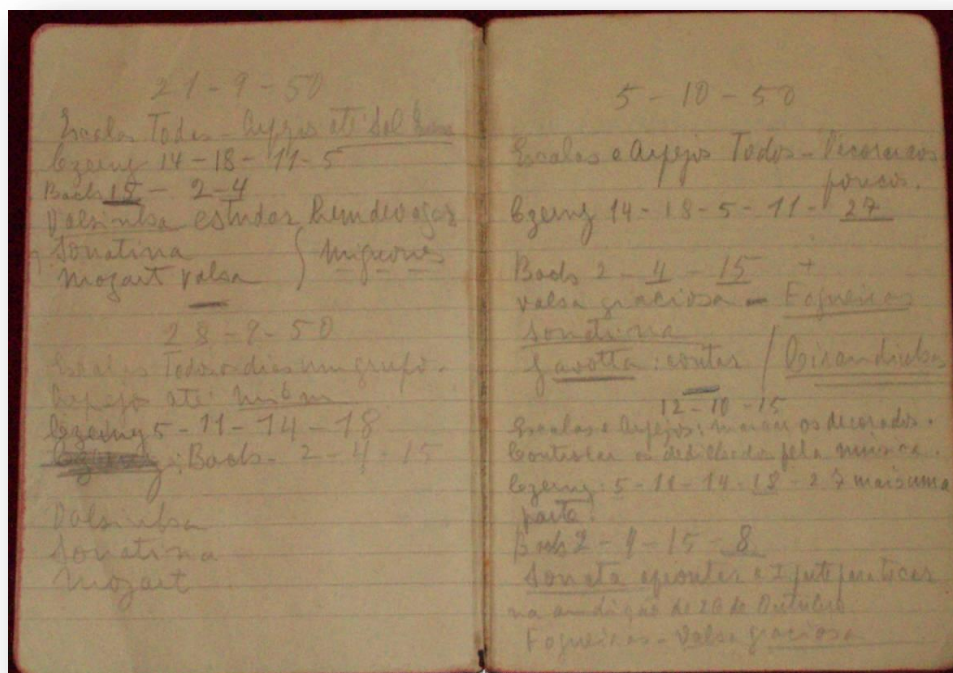 21-9-50
Escalas Todas - Arpejos até Sol
Czerny 14-18-11-5
Bach 15 - 2-4
Valsinha estudar bem devagar
Sonatina
Mozart valsa
28-9-50
Escalas Todos os dias um grupo.
Arpejos até
Czerny 5-11-14-18
Bach - 2-4-15
Valsinha
Sonatina
Mozart
5-10-50
Escalas e Arpejos Todos -
Czerny 14-18-5-11-27
Bach 2-4-15 +
Valsa graciosa - Fogueiras
Sonatina
Gavotta: contar / Cirandinha
12-10-15
Escalas e Arpejos; os decorados.
Controlar o dedilhado pela música.
Czerny: 5-11-14-18-27 mais uma
parte.
Bach 2-4-15-8
Sonata
na audição de 26 de Outubro
Fogueiras - Valsa graciosa